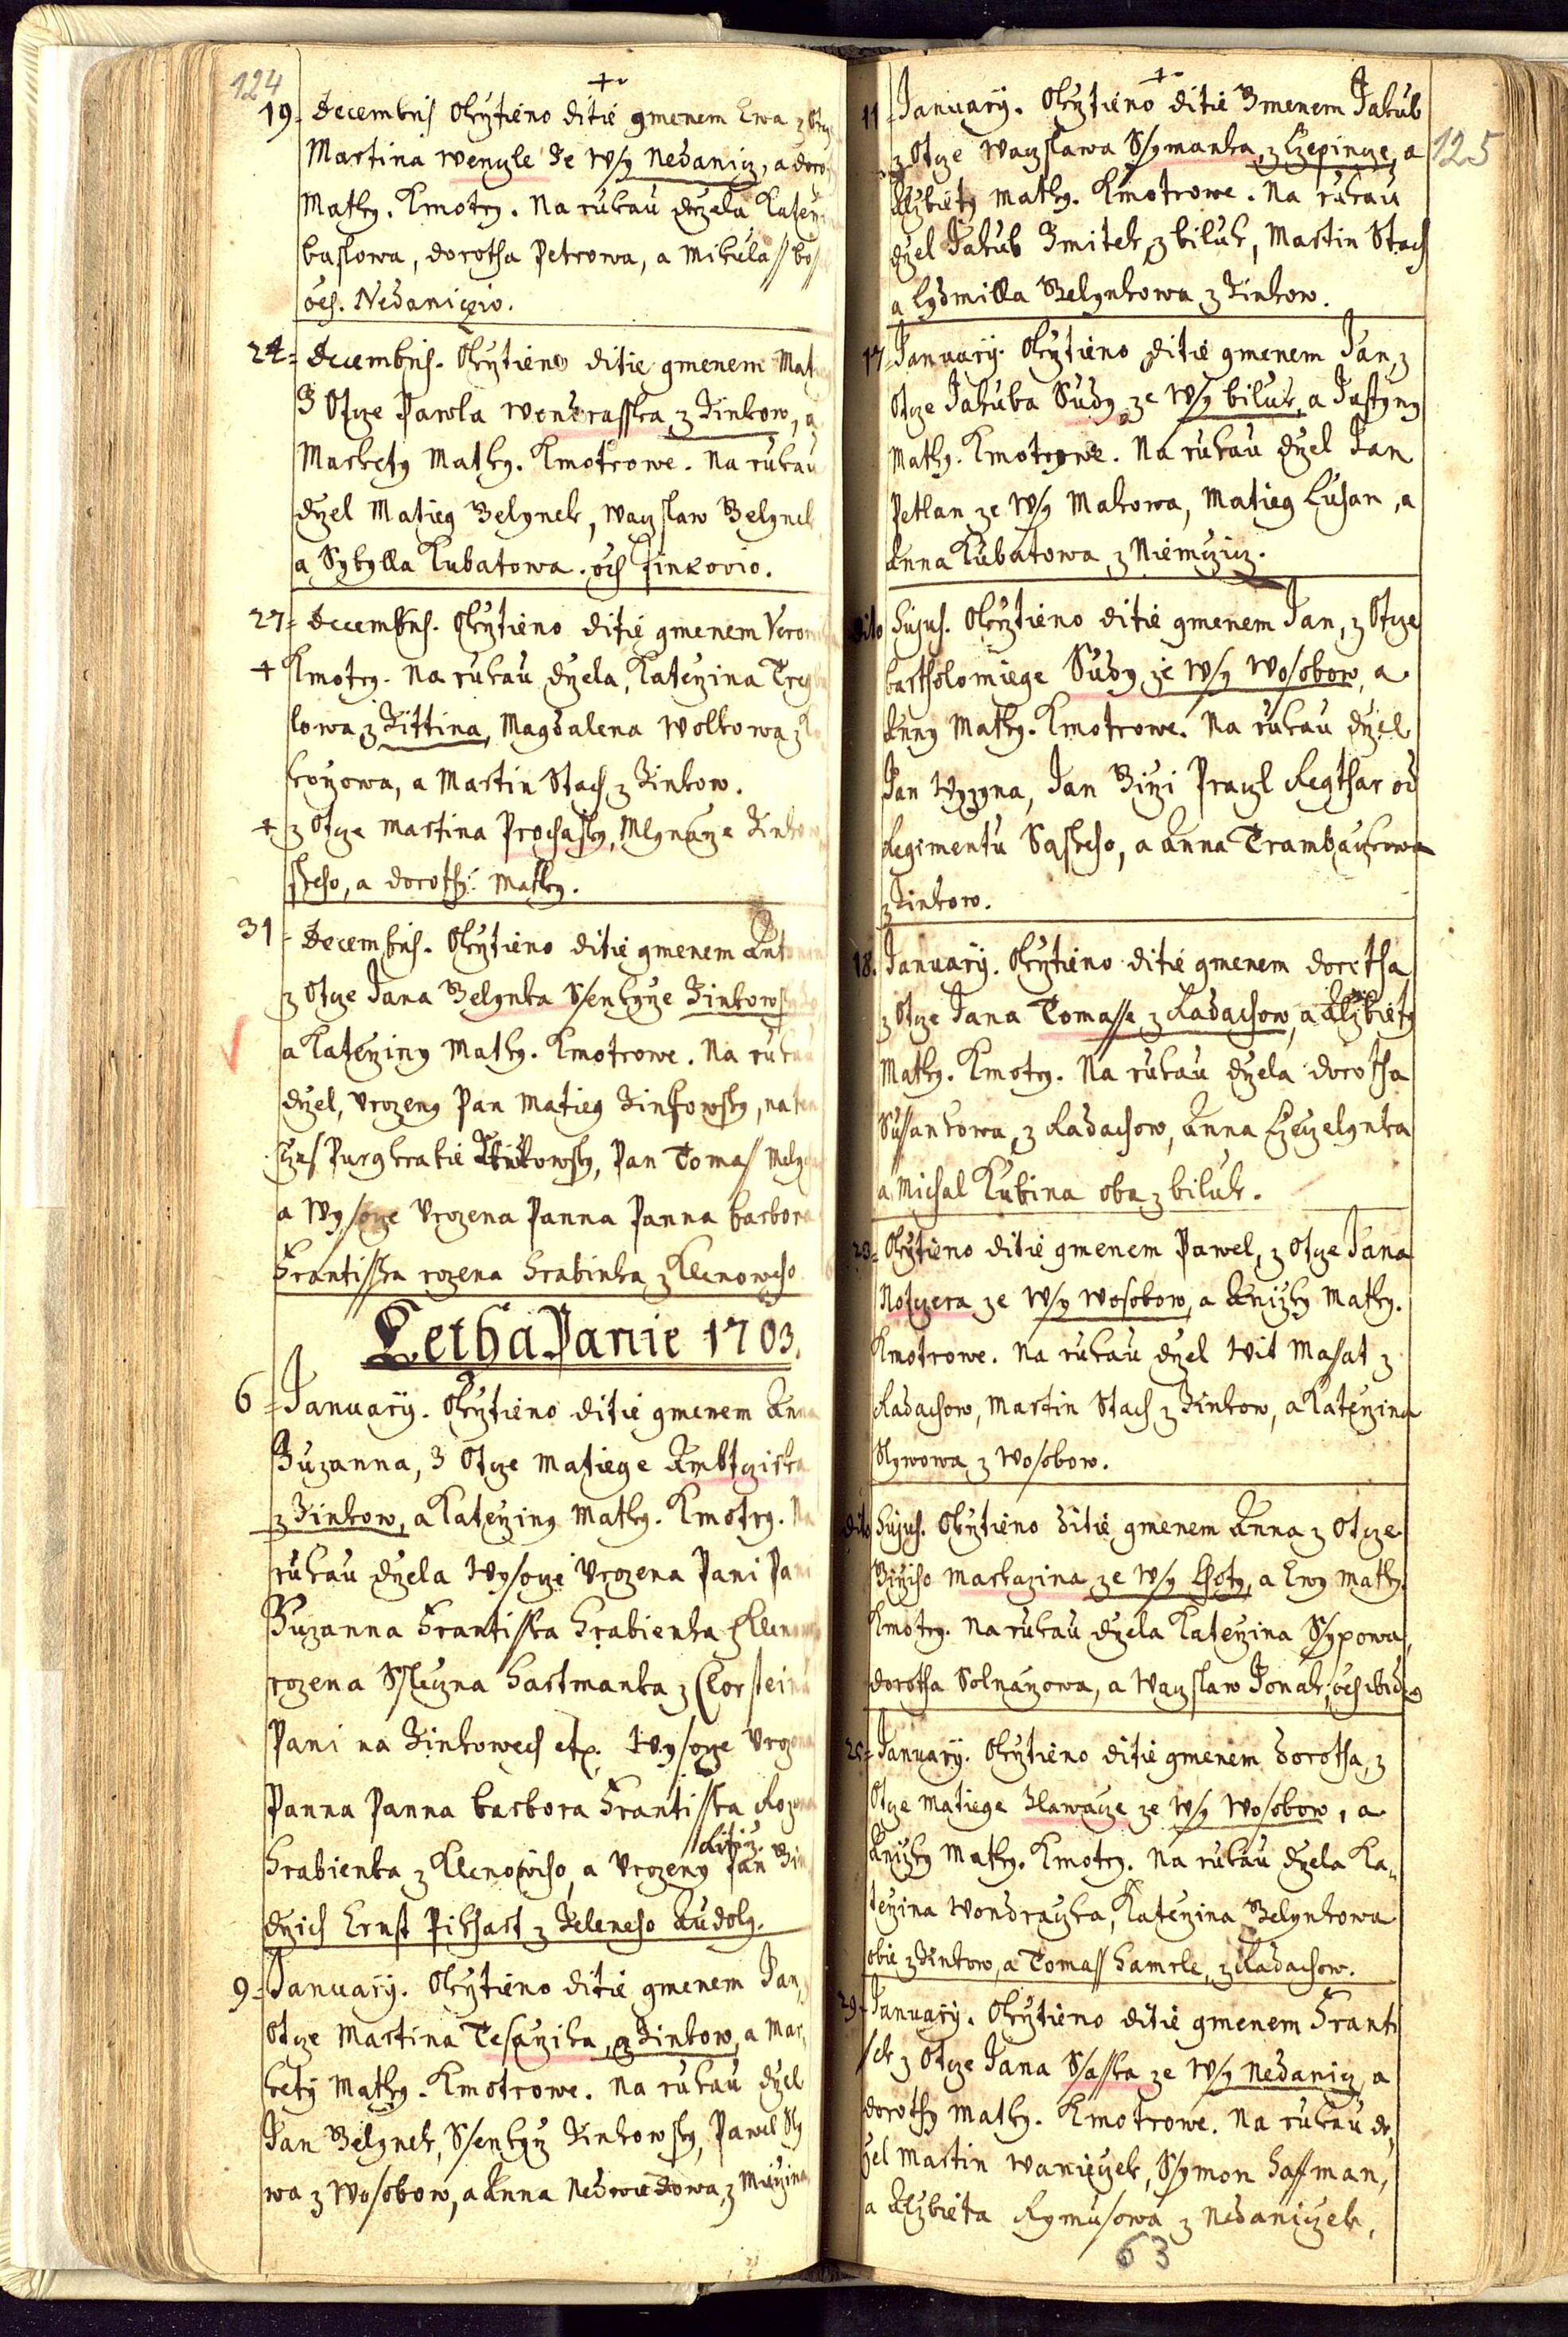 124
19. Decembris Okrztieno ditie gmenem Ewa z Otcze
Martina Wenzle Ze Wsy Nedanicz, a doro
Matky. Kmotry. Na rukau drzela Katerz
baslowa, dorotha Petrowa, a Mikulass
oes. Nedaniczio.
24. Decembris. Okrztieno ditie gmenem Mat
Z Otcze Pawla Wondrasska z Zinkow, a
Markety Matky. Kmotrowe. Na rukau
drzel Matieg Belynek, Waczslaw Belynek
a Sybylla Kubatowa. oes Zinkovio.
27. Decembris. Okrztieno ditie gmenem Veron
+ Kmotry. Na rukau drzela, Katerzina
lowa z Zittina, Magdalena Wolkowa z
konowa, a Martin Stach z Zinkow.
+ z Otcze Martina Prochasky, Mlynarze Zinkow
skeho, a dorothy Matky.
31. Decembris. Okrztieno ditie gmenem Antonin
z Otcze Jana Belynka Ssenkyrze Zinkowskeho
a Katerziny Matky. Kmotrowe. Na rukau
drzel, Vrozeny Pan Matieg Zinkowsky, na ten
czas Purgkrabie Zinkowsky, Pan Tomass
a Wysocze Vrozena Panna Panna barbora
Frantisska rozena hrabinka z Klenoweho
Letha Panie 1703.
6. January. Okrztieno ditie gmenem Anna
Zuzanna, Z Otcze Matiege
z Zinkow, a Katerziny Matky. Kmotry. Na
rukau drzela Wysocze Vrozena Pani Pani
Zuzanna Frantisska hrabienka z Klenoweho
rozena Ssleczna hartmanka z Clorsteinu
Pani na Zinkowech etc. Wysocze Vrozena
Panna Panna barbora Frantisska Rozena
hrabienka z Klenoweho, a Vrozeny Pan
Ritirz.
drzich Ernst Pikhart z Zeleneho Audoly.
9. January. Okrztieno ditie gmenem Jan, z
Otcze Martina Tesarzika, z Zinkow, a Mar,
kety Matky. Kmotrowe. Na rukau drzel
Jan Belynek, Ssenkyrz Zinkowsky, Pawel Sly
wa z Wosobow, a Anna Nedwiedowa, z
11. January. Okrztieno ditie Zmenem Jakub
z Otcze Waczslawa Ssymanka, z Czepincze, a
125
Alzbiety Matky. Kmotrowe. Na rukau
drzel Jakub Zmitek z biluk, Martin Stach
a Lydmilla Belynkowa z Zinkow.
17. January. Okrztieno ditie gmenem Jan, z
Otcze Jakuba Sudy ze Wsy biluk, a Justyny
Matky. Kmotrowe. Na rukau drzel Jan
Petlan ze Wsy Makowa, Matieg Lusan, a
Anna Kubatowa z Niemczicz.
dito hujus. Okrztieno ditie gmenem Jan, z Otcze
bartholomiege Sudy ze Wsy Wosobow, a
Anny Matky. Kmotrowe. Na rukau drzel
Jan Wyzyna, Jan Girzi Praczl Regthar od
Regimentu Saskeho, a Anna Trambaurkowa
z Zinkow.
18. January. Okrztieno ditie gmenem dorotha
z Otcze Jana Tomasse z Radachow, a Alzbiety
Matky. Kmotry. Na rukau drzela dorotha
Sussankowa, z Radachow, Anna Czeczelynka
a Michal Kubina oba z biluk.
23. Okrztieno ditie gmenem Pawel, z Otcze Jana
Notczera ze Wsy Wosobow, a Aniczky Matky.
Kmotrowe. Na rukau drzel Wit Masat z
Radachow, Martin Stach z Zinkow, a Katerzina
Slywowa z Wosobow.
dito hujus. Okrztieno ditie gmenem Anna z Otcze
Girziho Markazina ze Wsy Lhoty, a Ewy Matky.
Kmotry. Na rukau drzela Katerzina Ssypowa,
dorotha Solnarzowa, a Waczslaw Jonak, oes ibid.
25. January. Okrztieno ditie gmenem dorotha, z
Otcze Matiege Hlawacze ze Wsy Wosobow, a
Aniczky Matky. Kmotry. Na rukau drzela Ka,
terzina Wondraczka, Katerzina Belynkowa
obie z Zinkow, a Tomass hamrle, z Radachow.
29. January. Okrztieno ditie gmenem Franti
ssek z Otcze Jana Sasska ze Wsy Nedanicz, a
dorothy Matky. Kmotrowe. Na rukau dr,
zel Martin Wanieczek, Ssymon haffman,
a Alzbieta Rymussowa z Nedaniczek,
63